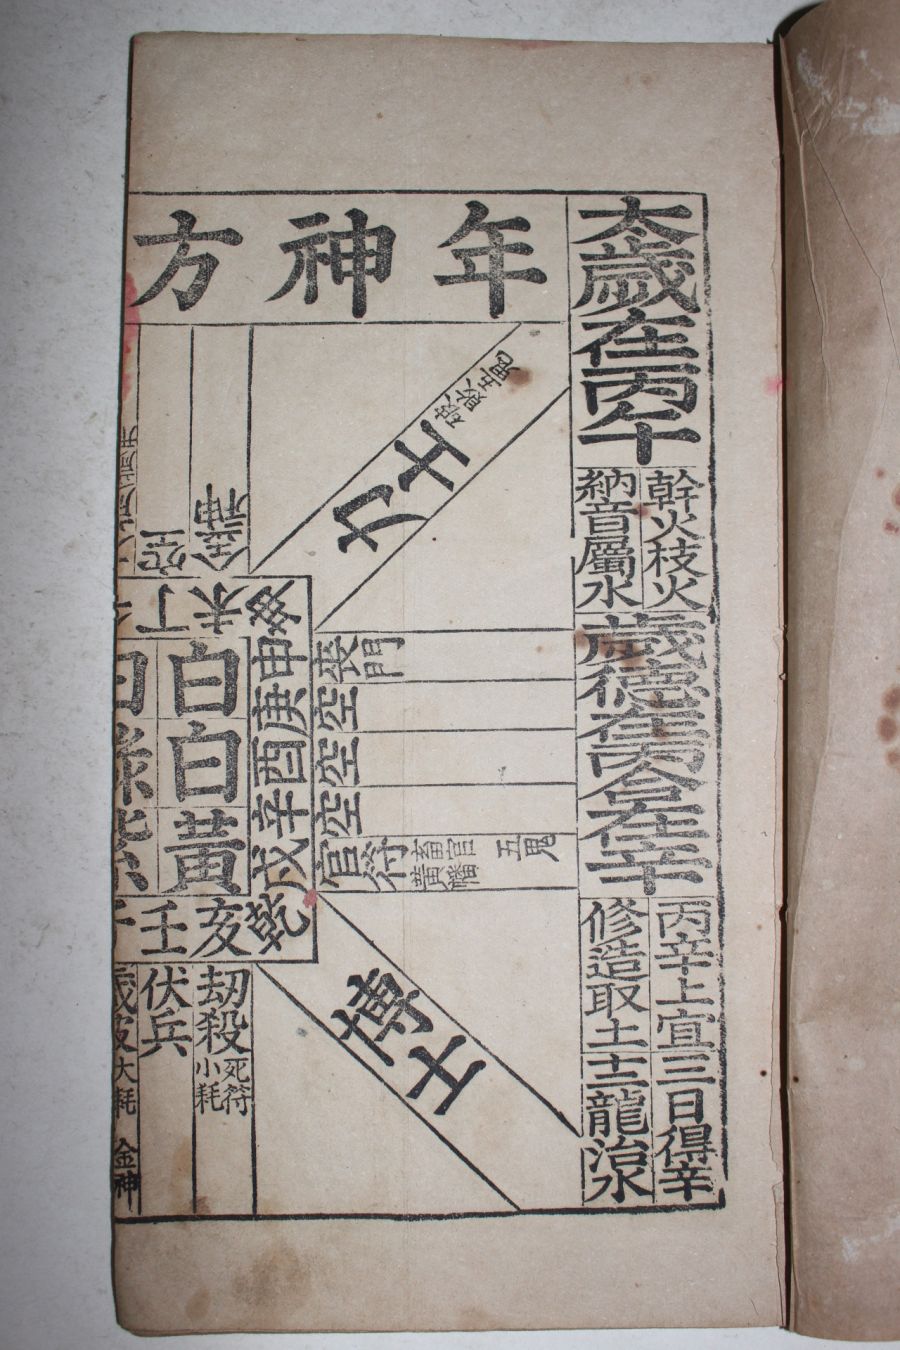 太歲在丙午
幹火枝火
納音屬水
歲德在丙合在辛
丙辛上宜
修造取土
三日得辛
十二龍治水
年神方
力士
五鬼
喪門
空
空
空
官符
畜官
黃幡
五鬼
博士
申庚酉辛戌乾
未丁
金神
空
白白黃
亥壬
劫殺
死符
小耗
伏兵
大耗
金神